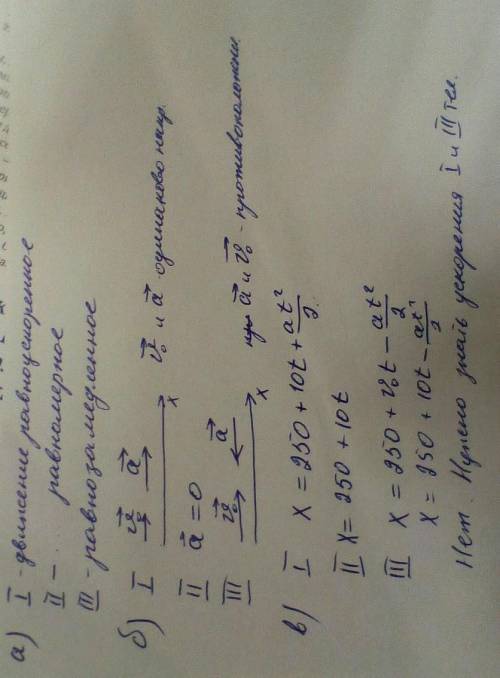 а) I - движение равноускоренное
II - ... равномерное
III - равнозамедленное
б) I v₀→ a→ x v₀→ и a→ одинаково напр.
II a→ = 0
III v₀→ a→ x при a→ и v₀→ - противоположени.
в) I x = 250 + 10t + at²/2
II x = 250 + 10t
III x = 250 + v₀t - at²/2
x = 250 + 10t - at²/2
Нет. Нужно знать ускорения I и III тел.